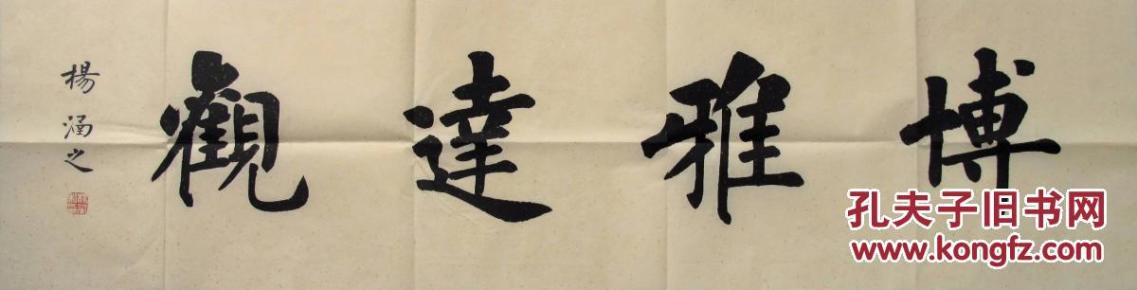 博雅達觀
楊涵之
孔夫子旧书网
www.kongfz.com